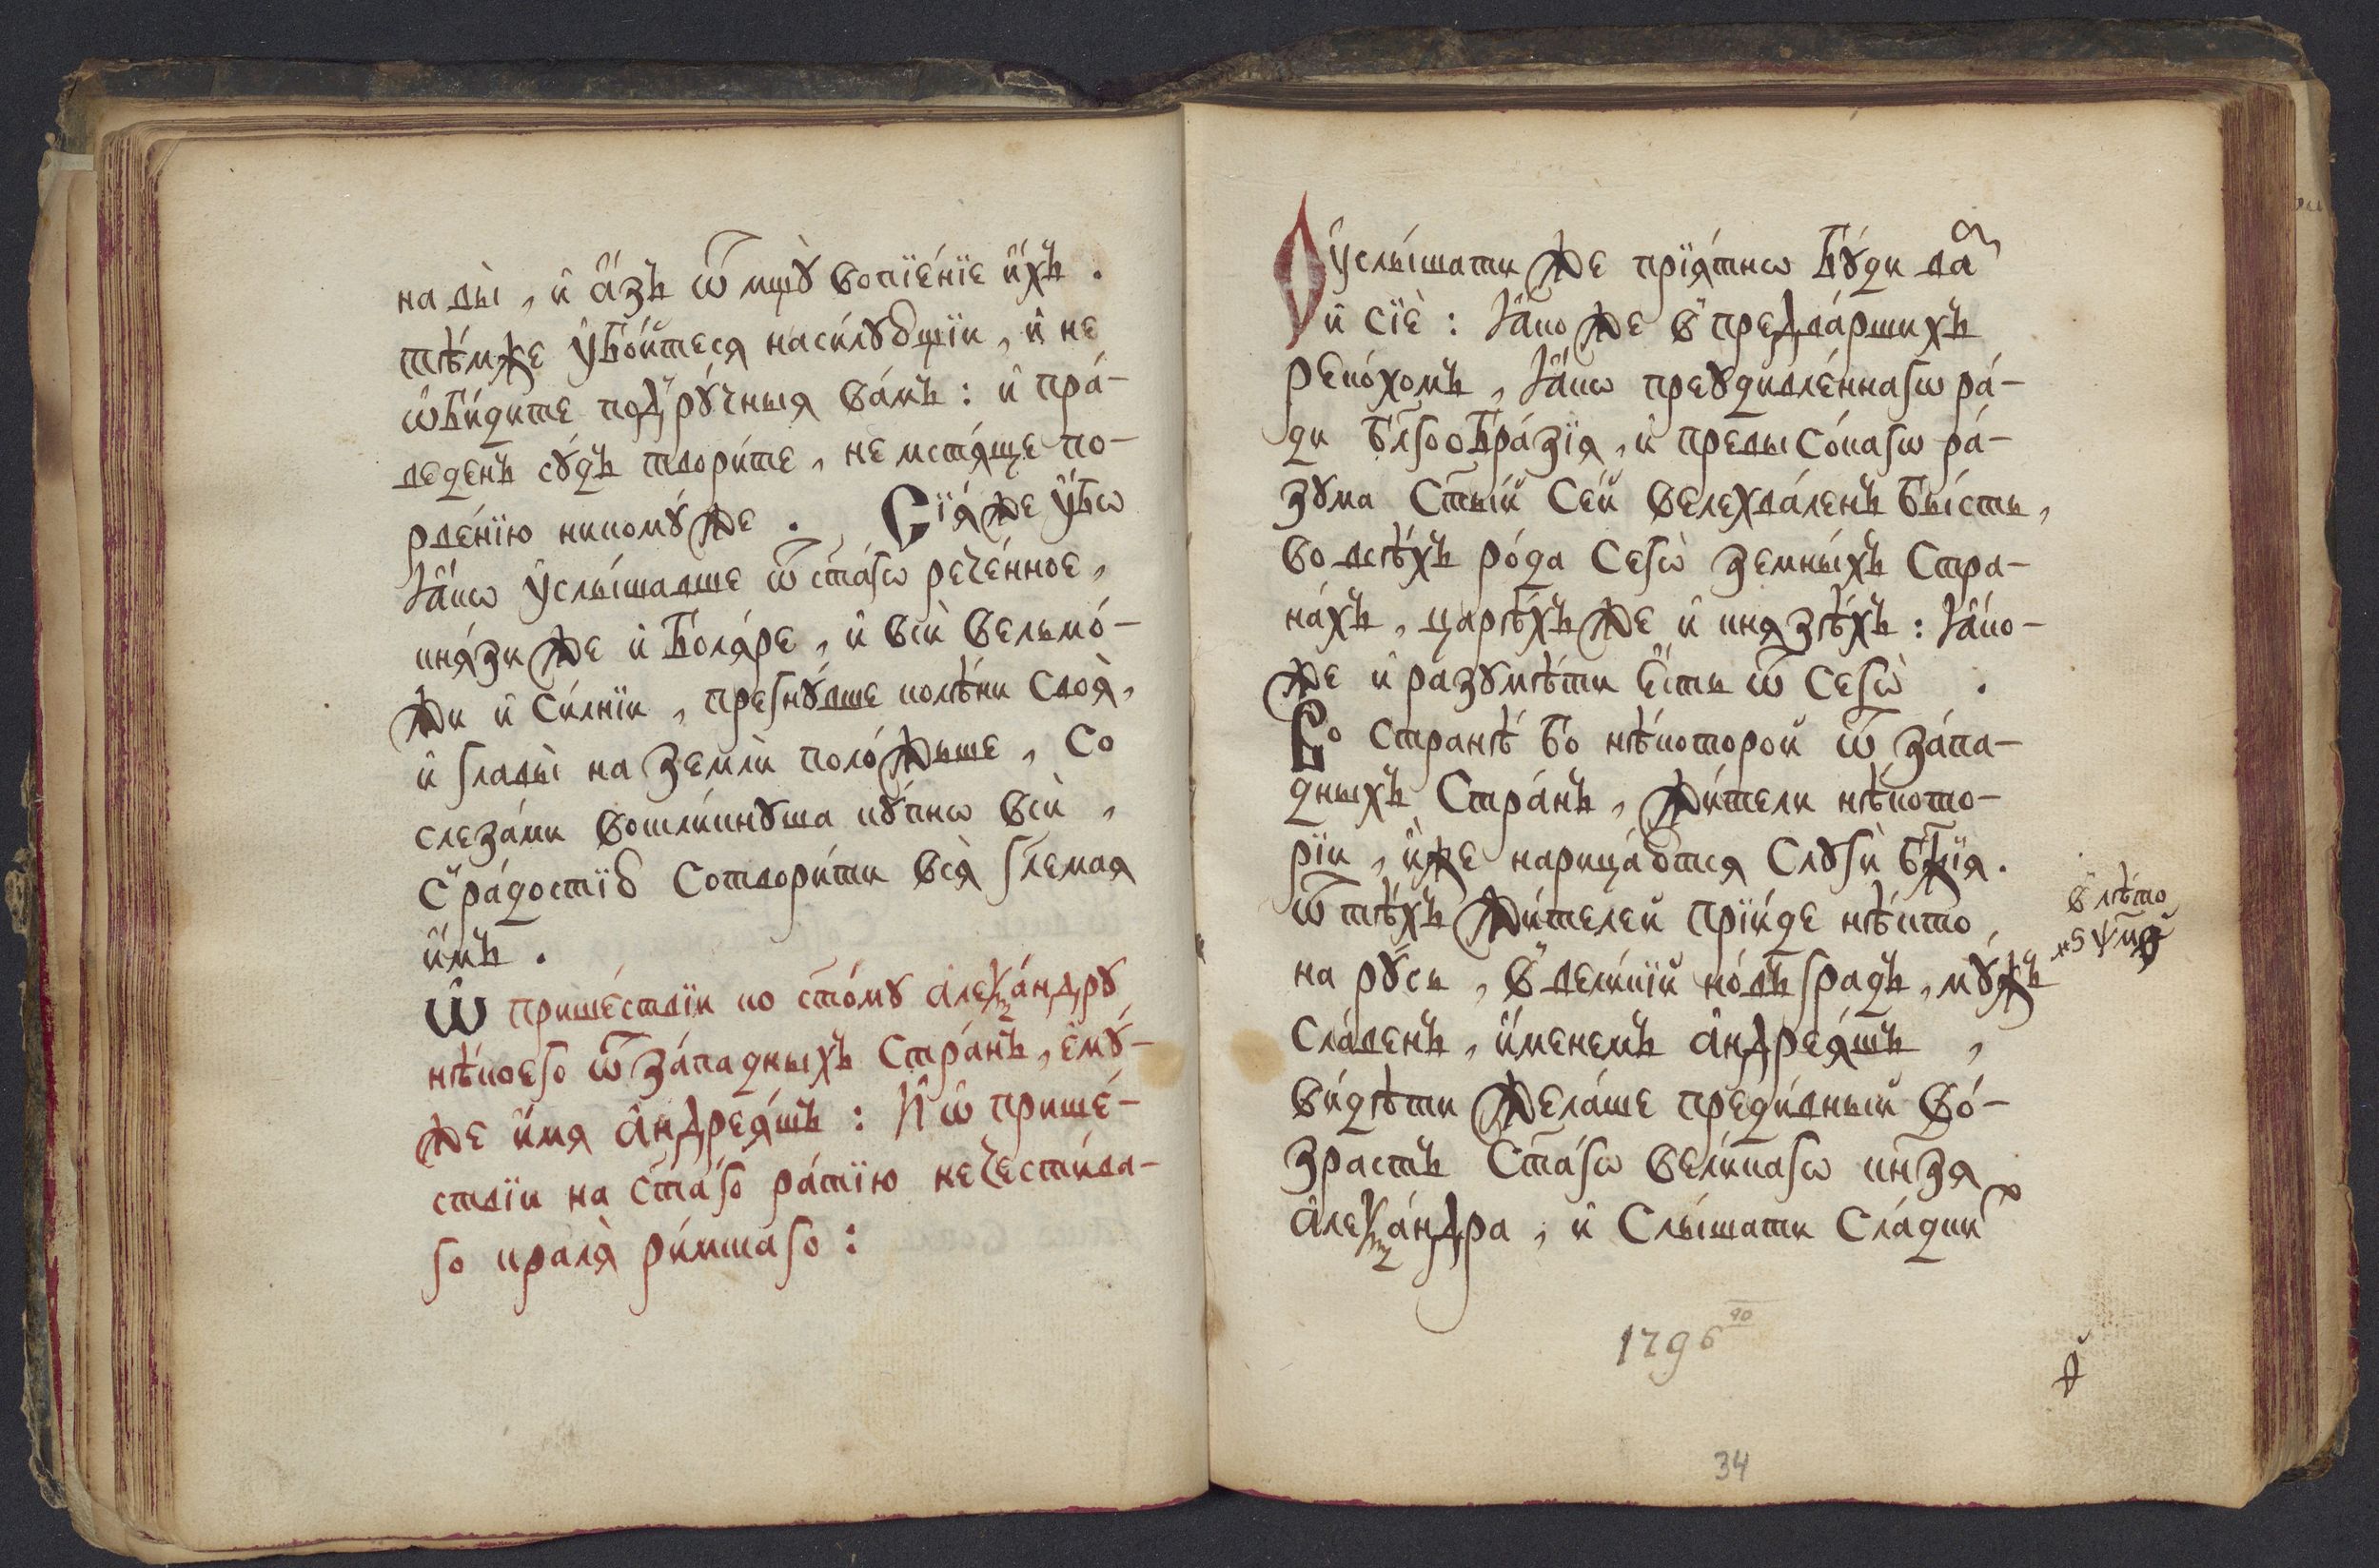 на вы̀, и҆ а҆́зъ ѿмщꙋ̀ вопїе́нїе и҆́хъ.
тѣ́мже ᲂу҆бо́йтеся наси́лꙋющїи, и҆ не
ѡ҆би́дите подрꙋ́чныя ва́мъ: и҆ пра́-
веденъ сꙋ́дъ твори́те, не мстя́ще по-
рве́нїю никомꙋ́же. Сїя́же ᲂу҆́бѡ
ꙗ҆́кѡ ᲂу҆слы́шавше ѿ ст҃а́гѡ рече́нное,
кня́зи же и҆ боля́ре, и҆ вси̑ вельмо́-
жи и҆ си́лнїи, прегнꙋ́вше колѣ́ни своя̀,
и҆ главы̀ на землѝ поло́жьше, со
слеза́ми вошли́кнꙋша кꙋ́пнѡ вси̑,
с̾ ра́достїю сотвори́ти вся̑ гл҃емая
и҆́мъ.
Ѡ҆ прише́ствїи ко ст҃о́мꙋ а҆леѯа́ндрꙋ
нѣ́коего ѿ за́падныхъ стра́нъ, є҆мꙋ́-
же и҆́мя а҆ндрея́шъ: И҆ ѡ҆ прише́-
ствїи на ст҃а́го ра́тїю нечести́ва-
го краля̀ ри́мшаго:
Оу҆слы́шати же прїя́тнѡ бꙋ́ди ва́м
и҆ сїѐ: ꙗ҆́коже в̾ предва́ршихъ
реко́хомъ, ꙗ҆́кѡ преꙋдивле́ннагѡ ра́-
ди бл҃гоѻбра́зїя, и҆ превысо́кагѡ ра́-
зꙋма ст҃ы́й се́й велехва́ленъ бы́сть,
во всѣ́хъ ро́да сегѡ̀ земны́хъ стра-
на́хъ, царѣ́хъ же и҆ князѣ́хъ: ꙗ҆́ко-
же и҆ разꙋмѣ́ти є҆́сть ѿ сегѡ̀.
Во странѣ́ бо нѣ́которой ѿ за́па-
дныхъ стра́нъ, жи́тели нѣ́кото-
рїи, и҆̀же нарица́ются слꙋги̑ бж҃їя.
ѿ тѣ́хъ жи́телей прїи́де нѣ́кто
на рꙋ́сь, в̾ вели́кїй но́въгра́дъ, мꙋ́жъ
сла́венъ, и҆́менемъ а҆ндрея́шъ,
ви́дѣти жела́ше преди́вный во́-
зрастъ ст҃а́гѡ вели́кагѡ кн҃зя
а҆леѯа́ндра, и҆ слы́шати сла́дких
в̾ лѣ́то
҂ѕѱм҃ѳ
1796
90
34